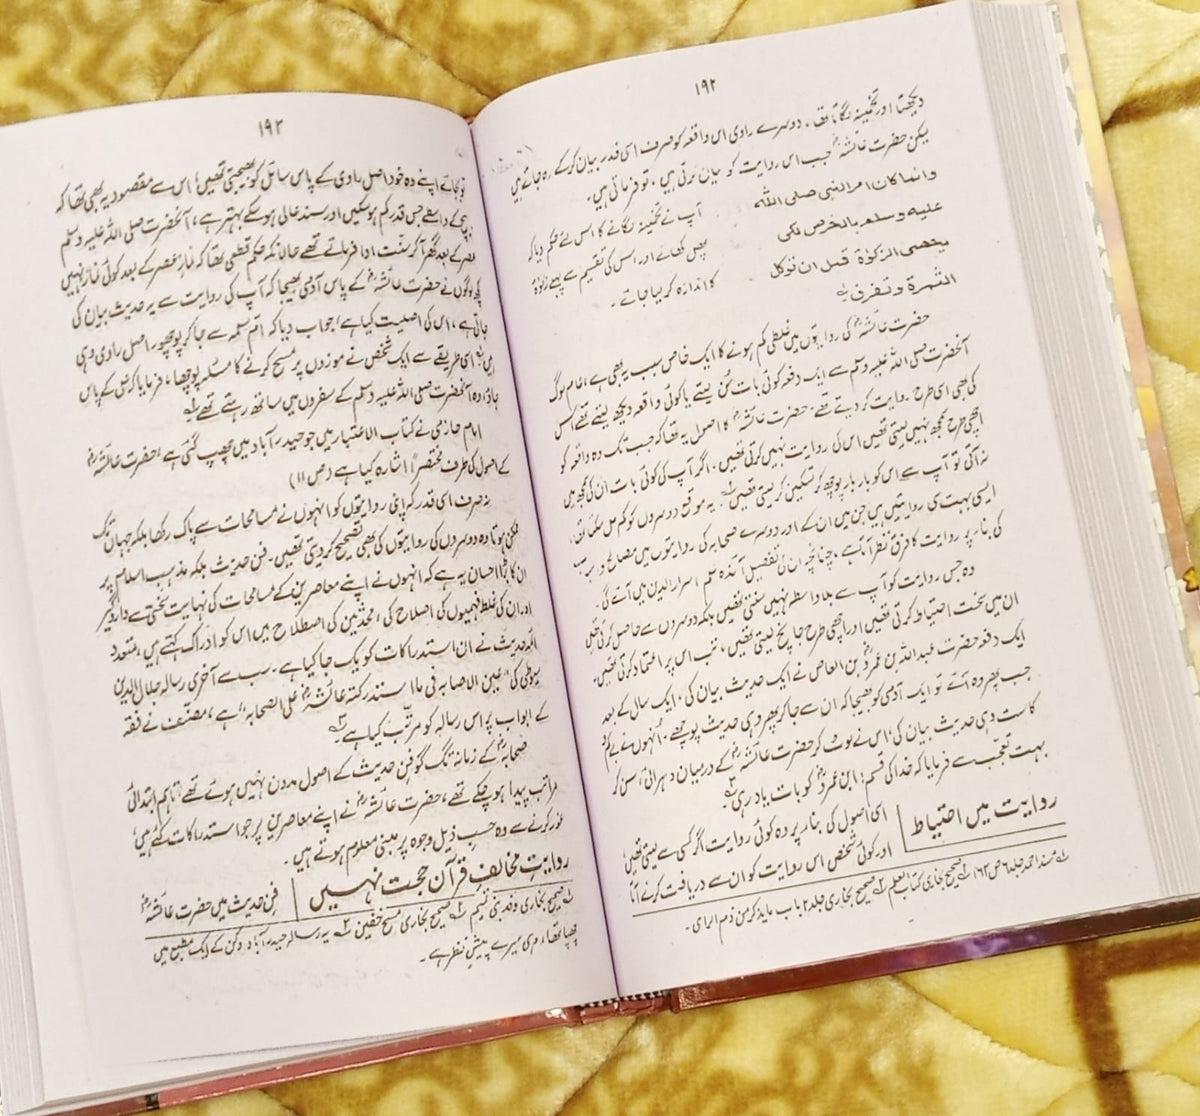 ۱۹۲
دیکھتا اور تخمینہ لگاتا تھا۔ دوسرے راوی اس واقعہ کو صرف اسی قدر بیان کر کے رہ جاتے ہیں
لیکن حضرت عائشہؓ جب اس روایت کو بیان کرتی ہیں، تو فرماتی ہیں۔
وانما کان امر النبی صلی اللہ
علیہ وسلم بالخرص لکی
یحصی الزکوٰۃ قبل ان توکل
الثمرۃ وتفرق
آپ نے تخمینہ لگانے کا اس لئے حکم دیا کہ
پھل کھانے اور اس کی تقسیم سے پہلے زکوٰۃ
کا اندازہ کر لیا جائے۔
حضرت عائشہؓ کی روایتوں میں غلطی کم ہونے کا ایک خاص سبب یہ بھی ہے، عام لوگ
آنحضرت صلی اللہ علیہ وسلم سے ایک دفعہ کوئی بات سن لیتے یا کوئی واقعہ دیکھ لیتے تھے اس
کی بھی اسی طرح روایت کر دیتے تھے۔ حضرت عائشہؓ کا اصول یہ تھا کہ جب تک وہ واقعہ کو
اچھی طرح سمجھ نہیں لیتی تھیں اس کی روایت نہیں کرتی تھیں۔ اگر آپ کی کوئی بات ان کی سمجھ میں
نہ آتی تو آپ سے اس کو بار بار پوچھ کر تسکین کر لیتی تھیں۔ یہ موقع دوسروں کو کم مل سکتا تھا،
ایسی بہت سی روایتیں ہیں جن میں ان کے اور دوسرے صحابہ کی روایتوں میں مصالح و اسباب
کی بناء پر روایت کا فرق نظر آتا ہے، چنانچہ ان کی تفصیل آئندہ علم اسرار الدین میں آئے گی۔
وہ جس روایت کو آپ سے بلا واسطہ نہیں سنتی تھیں بلکہ دوسروں سے حاصل کرتی تھیں
ان میں سخت احتیاط کرتی تھیں اور اچھی طرح جانچ لیتی تھیں، تب اس پر اعتماد کرتی تھیں۔
ایک دفعہ حضرت عبداللہ بن عمروؓ بن العاص نے ایک حدیث بیان کی، ایک سال کے بعد
جب پھر وہ آئے تو ایک آدمی کو بھیجا کہ ان سے جا کر پھر وہی حدیث پوچھے، انہوں نے بے کم و
کاست وہی حدیث بیان کی، اس نے لوٹ کر حضرت عائشہؓ کے درمیان دہرائی، سن کر
بہت تعجب سے فرمایا کہ خدا کی قسم! ابن عمروؓ کو بات یاد رہی۔
روایت میں احتیاط
اسی اصول کی بناء پر وہ کوئی روایت اگر کسی سے لیتی تھیں،
اور کوئی شخص اس روایت کو ان سے دریافت کرنے آتا
لہ مسند احمد جلد ۶ ص ۱۶۳ لہ صحیح بخاری کتاب العلم لہ صحیح بخاری جلد ۲ باب مایذکر من ذم الرای۔
۱۹۳
تو بجائے اپنے وہ خود اصل راوی کے پاس سائل کو بھیجتی تھیں! اس سے مقصود یہ بھی تھا کہ
بیچ کے واسطے جس قدر کم ہو سکیں اور سند عالی ہو سکے بہتر ہے، آنحضرت صلی اللہ علیہ وسلم
عصر کے بعد گھر آ کر سنت ادا فرماتے تھے حالانکہ حکم قطعی تھا کہ نماز عصر کے بعد کوئی نماز نہیں
کچھ لوگوں نے حضرت عائشہؓ کے پاس آدمی بھیجا کہ آپ کی روایت سے یہ حدیث بیان کی
جاتی ہے، اس کی اصلیت کیا ہے؟ جواب دیا کہ ام سلمہ سے جا کر پوچھو، اصل راوی وہی
ہیں اسی طریقے سے ایک شخص نے موزوں پر مسح کرنے کا مسئلہ پوچھا، فرمایا کہ علی کے پاس
جاؤ، وہ آنحضرت صلی اللہ علیہ وسلم کے سفروں میں ساتھ رہتے تھے
امام حازمی نے کتاب الاعتبار میں جو حیدر آباد میں چھپ گئی ہے، حضرت عائشہؓ
کے اصول کی طرف مختصراً اشارہ کیا ہے (ص ۱۱)
نہ صرف اسی قدر کہ اپنی روایتوں کو انہوں نے مسامحات سے پاک رکھا بلکہ جہاں تک
ممکن ہوتا وہ دوسروں کی روایتوں کی بھی تصحیح کر دیتی تھیں۔ فن حدیث بلکہ مذہب اسلام پر
ان کا بڑا احسان یہ ہے کہ انہوں نے اپنے معاصرین کے مسامحات کی نہایت سختی سے داروگیر
اور ان کی غلط فہمیوں کی اصلاح کی، محدثین کی اصطلاح میں اس کو ادراک کہتے ہیں، متعدد
ائمہ حدیث نے ان استدراکات کو یک جا کیا ہے۔ سب سے آخری رسالہ جلال الدین
سیوطی کی "عین الاصابہ فی ما استدرکتہ عائشہؓ علی الصحابہ" ہے، مصنف نے فقہ
کے ابواب پر اس رسالہ کو مرتب کیا ہے۔
صحابہؓ کے زمانہ تک گو فن حدیث کے اصول مدون نہیں ہوئے تھے، تاہم ابتدائی
مراتب پیدا ہو چکے تھے، حضرت عائشہؓ نے اپنے معاصرین پر جو استدراکات کئے ہیں،
غور کرنے سے وہ حسب ذیل وجوہ پر مبنی معلوم ہوتے ہیں۔
روایت مخالف قرآن حجت نہیں
فن حدیث میں حضرت عائشہؓ
لہ صحیح بخاری وفد بنی تمیم لہ صحیح بخاری مسح خفین لہ یہ رسالہ حیدر آباد دکن کے ایک مطبع میں
چھپا تھا، وہی میرے پیش نظر ہے۔